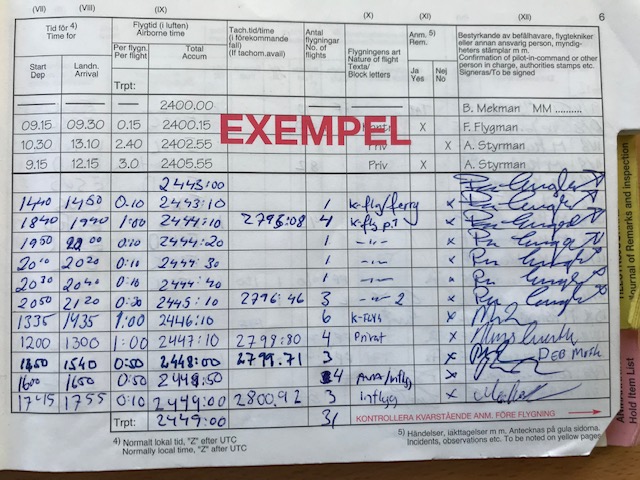 (VII) (VIII) (IX) (X) (XI) (XII) 6
Tid för 4) Time for
Flygtid (i luften) Airborne time
Tach.tid/time (i förekommande fall) (If tachom.avail)
Antal flygningar No. of flights
Flygningens art Nature of flight Texta/ Block letters
Anm. 5) Rem.
Bestyrkande av befälhavare, flygtekniker eller annan ansvarig person, myndighetens stämplar m m. Confirmation of pilot-in-command or other person in charge, authorities stamps etc. Signeras/To be signed
Start Dep Landn. Arrival Per flygn. Per flight Total Accum Ja Yes Nej No
Trpt:
2400.00 B. Mekman MM ..........
09.15 09.30 0.15 2400.15 X F. Flygman
10.30 13.10 2.40 2402.55 Priv X A. Styrman
9.15 12.15 3.0 2405.55 Priv X A. Styrman
EXEMPEL
2443:00
1440 1450 0:10 2443:10 1 k-fly/ferry x
1840 1940 1:00 2444:10 2795:08 4 k-fly x
1950 2000 0:10 2444:20 1 -"- x
2010 2020 0:10 2444:30 1 -"- x
2030 2040 0:10 2444:40 1 -"- x
2050 2120 0:30 2445:10 2796:46 3 -"- 2 x
1335 1435 1:00 2446:10 6 x
1200 1300 1:00 2447:10 2798:80 4 Privat x
1450 1540 0:50 2448:00 2799.71 3 x
1600 1650 0:50 2448:50 4 x
1745 1755 0:10 2449:00 2800.92 3 Inflyg x
Trpt: 2449:00 31 KONTROLLERA KVARSTÅENDE ANM. FÖRE FLYGNING
4) Normalt lokal tid, "Z" efter UTC
Normally local time, "Z" after UTC
5) Händelser, iakttagelser m m. Antecknas på gula sidorna.
Incidents, observations etc. To be noted on yellow pages
Journal of Remarks and inspection
Hold Item List